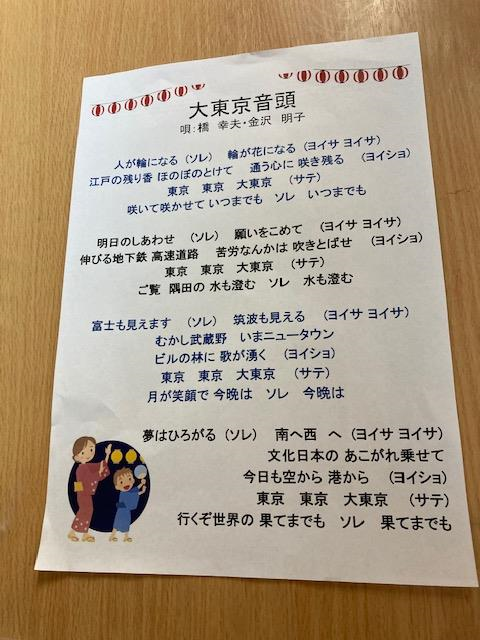 大東京音頭
唄:橋 幸夫・金沢 明子
人が輪になる (ソレ) 輪が花になる (ヨイサ ヨイサ)
江戸の残り香 ほのぼのとけて 通う心に 咲き残る (ヨイショ)
東京 東京 大東京 (サテ)
咲いて咲かせて いつまでも ソレ いつまでも
明日のしあわせ (ソレ) 願いをこめて (ヨイサ ヨイサ)
伸びる地下鉄 高速道路 苦労なんかは 吹きとばせ (ヨイショ)
東京 東京 大東京 (サテ)
ご覧 隅田の 水も澄む ソレ 水も澄む
富士も見えます (ソレ) 筑波も見える (ヨイサ ヨイサ)
むかし武蔵野 いまニュータウン
ビルの林に 歌が湧く (ヨイショ)
東京 東京 大東京 (サテ)
月が笑顔で 今晩は ソレ 今晩は
夢はひろがる (ソレ) 南へ西 へ (ヨイサ ヨイサ)
文化日本の あこがれ乗せて
今日も空から 港から (ヨイショ)
東京 東京 大東京 (サテ)
行くぞ世界の 果てまでも ソレ 果てまでも